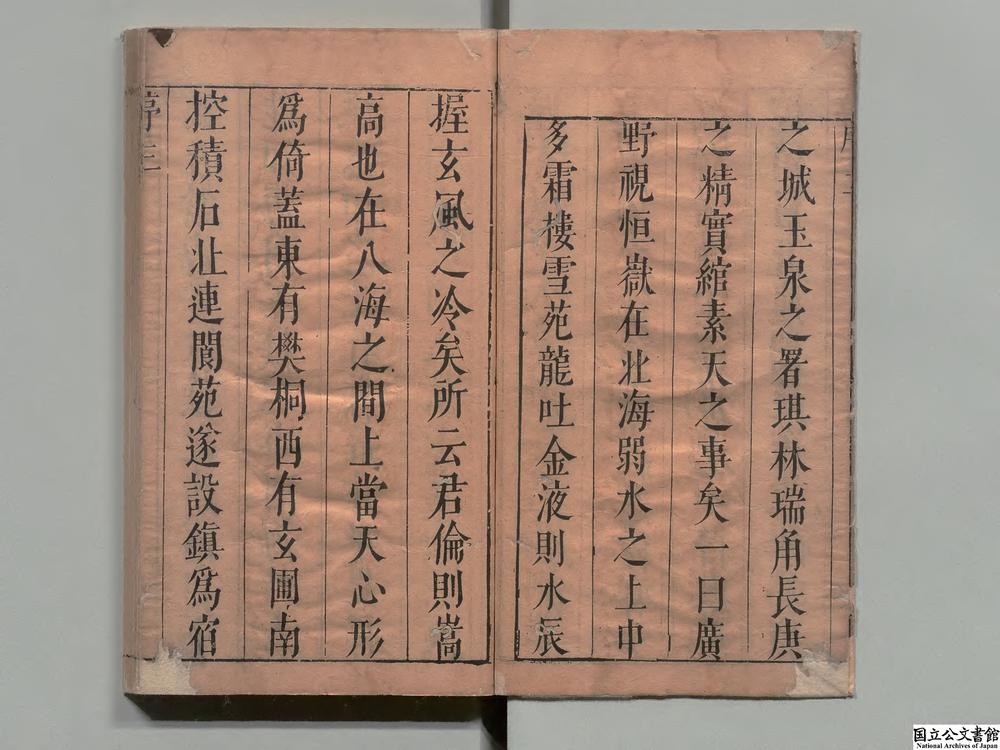 之城玉泉之署琪林瑞角長庚
之精實綰素天之事矣一曰廣
野視恒嶽在北海弱水之上中
多霜樓雪苑龍吐金液則水辰
握玄風之冷矣所云君倫則嵩
高也在八海之間上當天心形
爲倚蓋東有樊桐西有玄圃南
控積石北連閬苑遂設鎮爲宿
序三
国立公文書館
National Archives of Japan